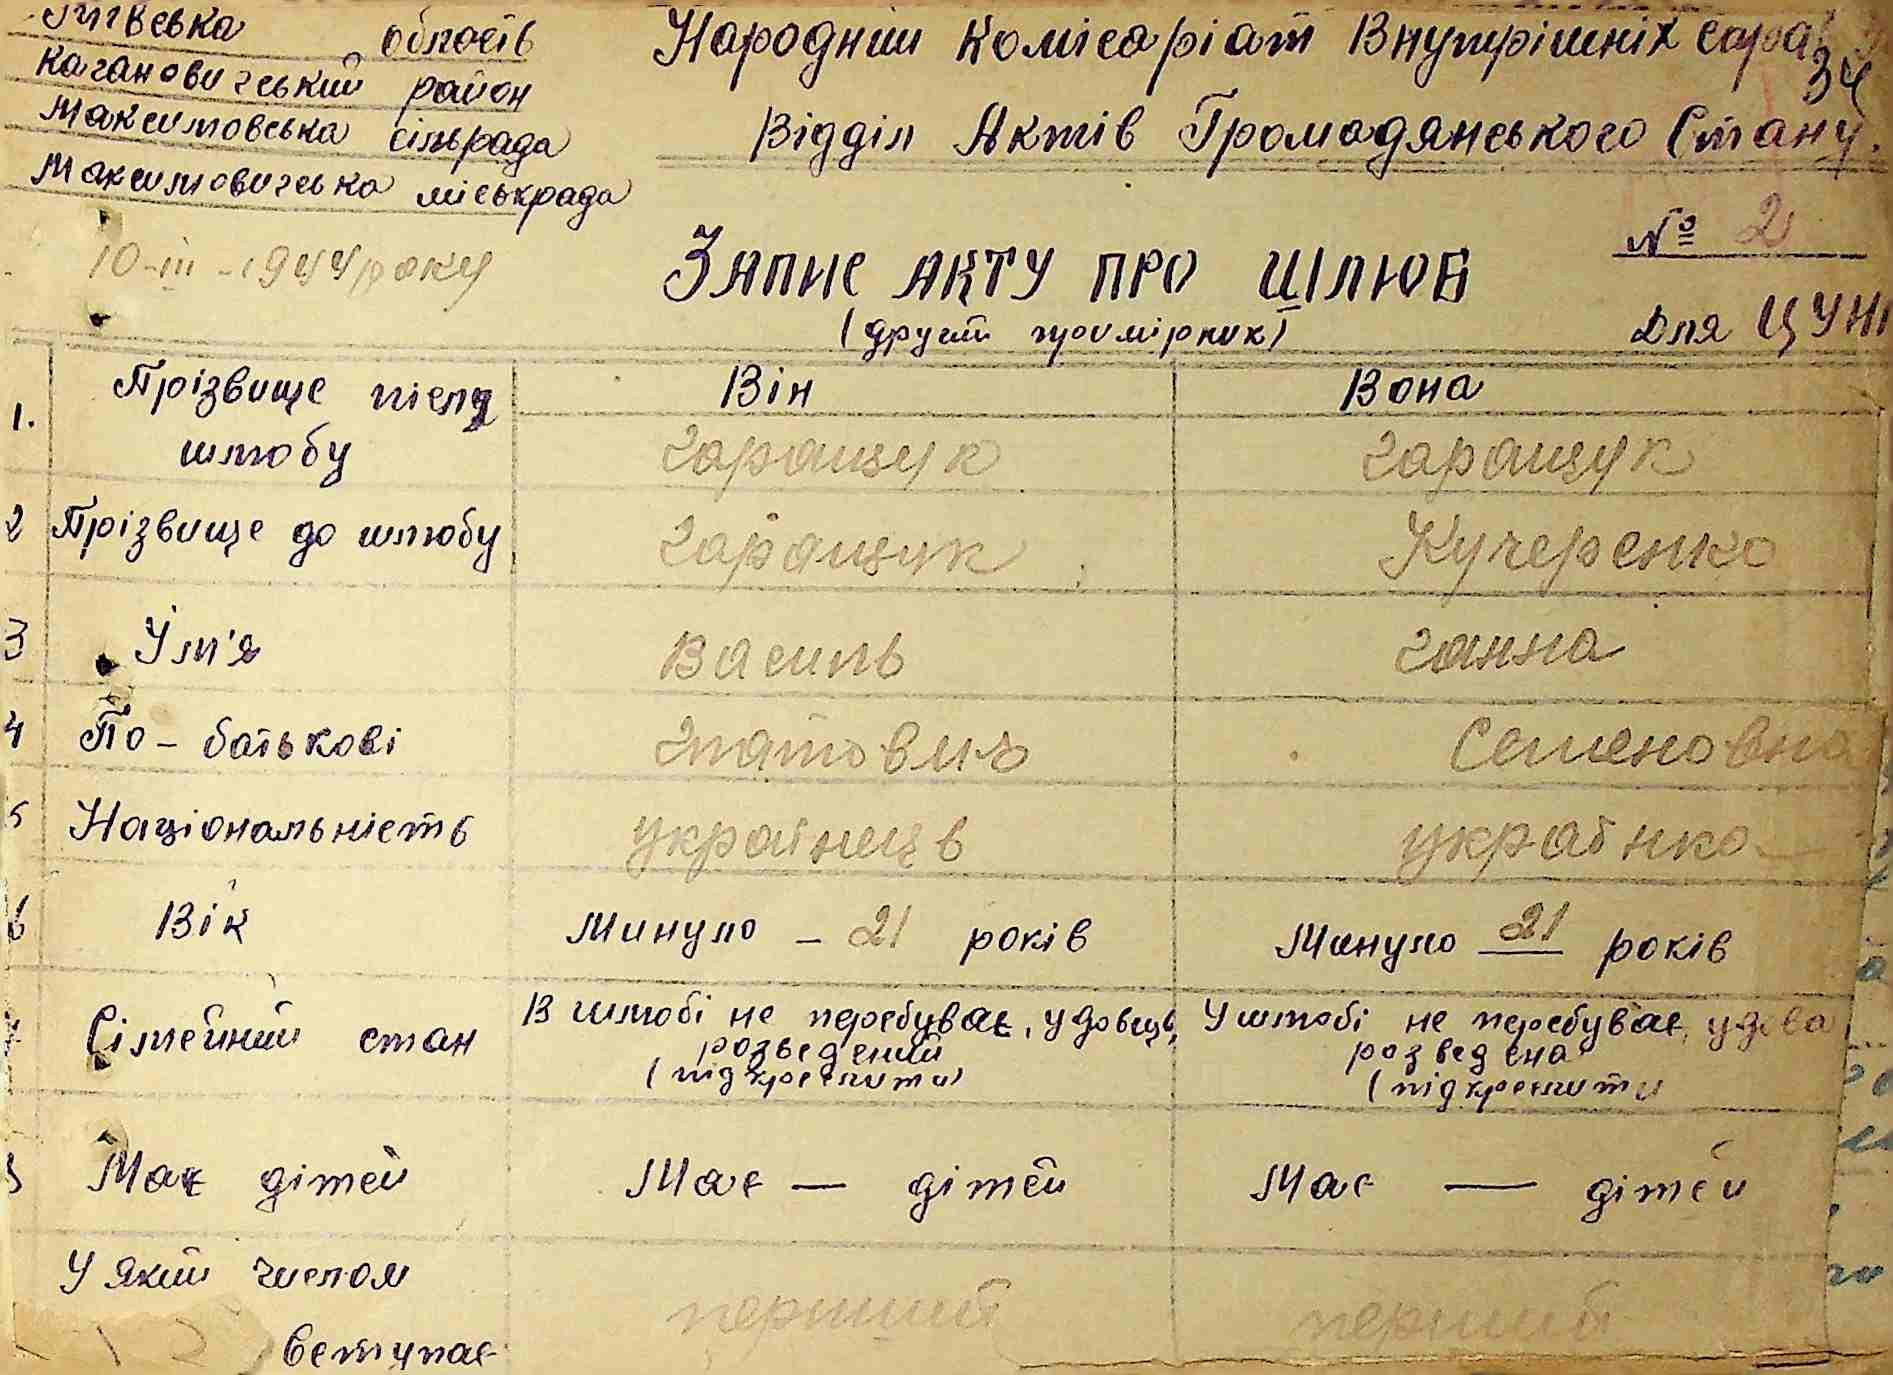 область
Кагановичський район
Максимовська сільрада
Максимовичська міськрада
Народний Комісаріат Внутрішніх Справ
34
Відділ Актів Громадянського Стану.
№ 2
10-III-1944 року
Запис акту про шлюб
(другий примірник)
Для ЦУНГ
1. Прізвище після шлюбу
Він
Вона
Гаращук
Гаращук
2 Прізвище до шлюбу
Гаращук
Кучеренко
3 Ім'я
Василь
Ганна
4 По-батькові
Семеновна
5 Національність
українець
українка
6 Вік
Минуло - 21 років
Минуло 21 років
Сімейний стан
В шлюбі не перебуває, удовець,
розведений
(підкреслити)
У шлюбі не перебуває, удова
розведена
(підкреслити
Має дітей
Має — дітей
Має — дітей
У який числом
вступає
перший
перший